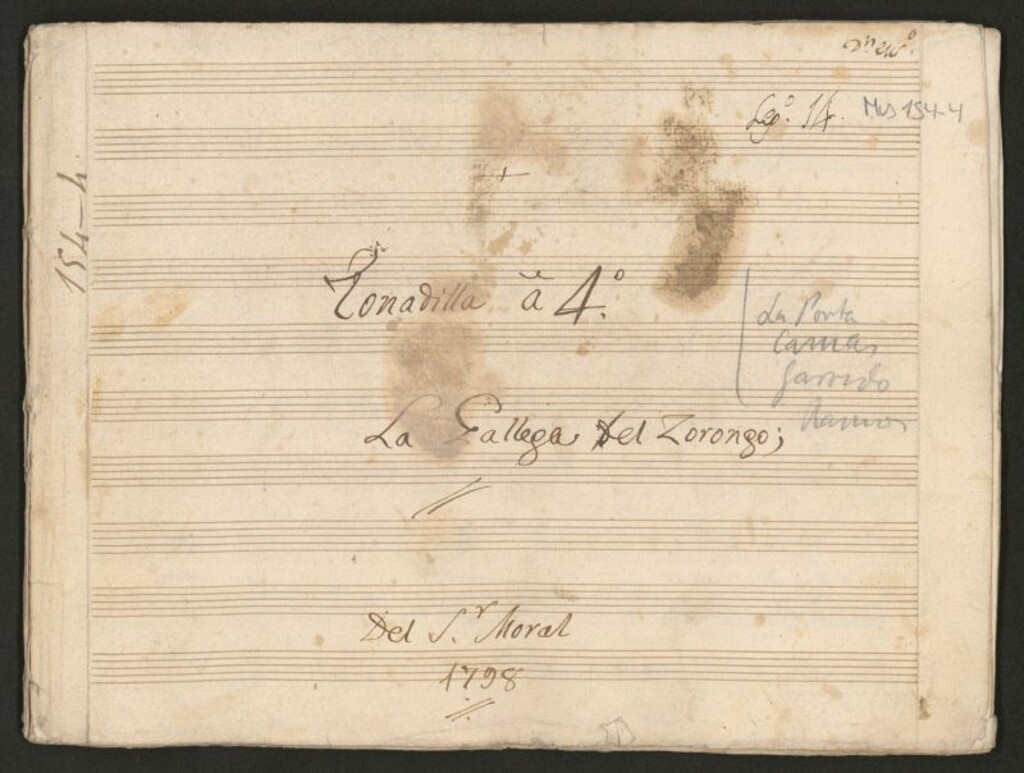 Leg.º 14.
Mus 154-4
154-4
Tonadilla â 4.º
La Porta
Camas
Garrido
Ramos
La Gallega Del Zorongo;
Del S.r Moral
1798